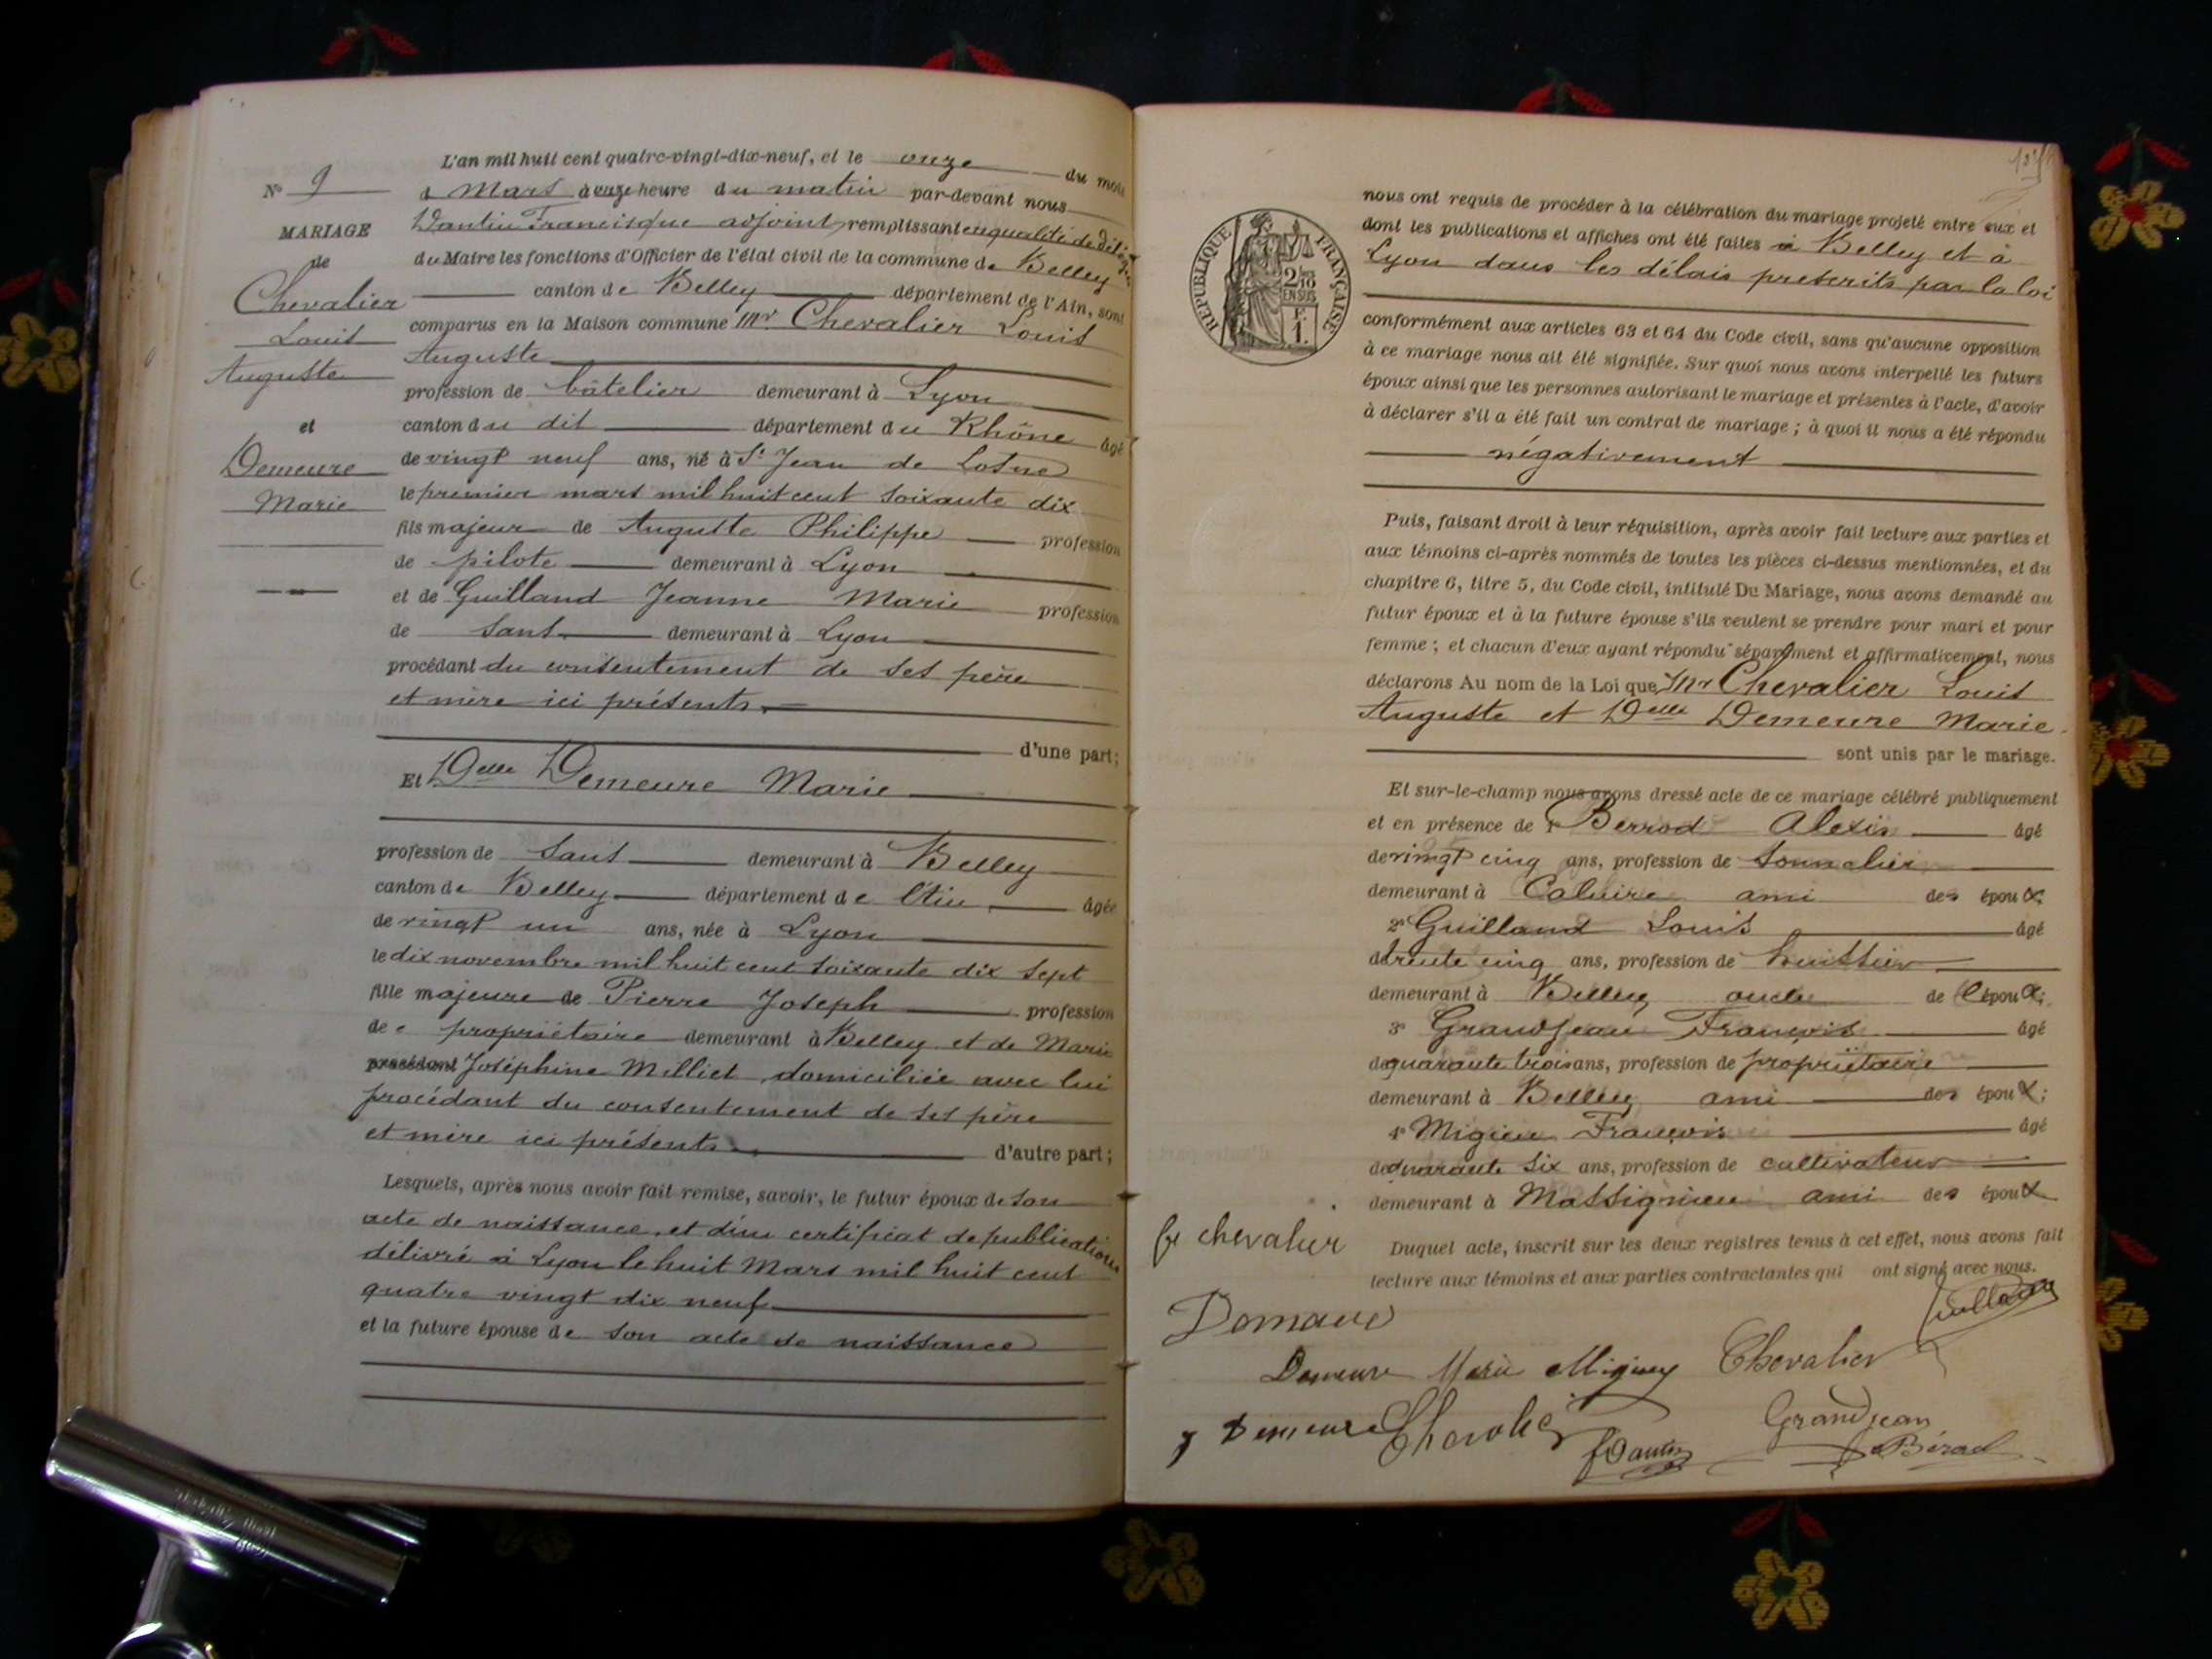 L'an mil huit cent quatre-vingt-dix-neuf, et le onze du mois
N° 9
d Mars à onze heure du matin par-devant nous
MARIAGE
Dantin Francisque adjoint remplissant en qualité de délégué
de
du Maire les fonctions d'Officier de l'état civil de la commune de Belley
Chevalier
canton de Belley département de l'Ain, sont
Louis
comparus en la Maison commune Mr Chevalier Louis
Auguste
Auguste
profession de bâtelier demeurant à Lyon
et
canton du dit département du Rhône âgé
Demeure
de vingt neuf ans, né à St Jean de Losne
Marie
le premier mars mil huit cent soixante dix
fils majeur de Auguste Philippe profession
de pilote demeurant à Lyon
et de Guilland Jeanne Marie profession
de sans demeurant à Lyon
procédant du consentement de ses père
et mère ici présents.
d'une part;
Et Delle Demeure Marie
profession de sans demeurant à Belley
canton de Belley département de l'Ain âgée
de vingt un ans, née à Lyon
le dix novembre mil huit cent soixante dix sept
fille majeure de Pierre Joseph profession
de propriétaire demeurant à Belley et de Marie
procédant Joséphine Milliet, domiciliée avec lui
procédant du consentement de ses père
et mère ici présents d'autre part;
Lesquels, après nous avoir fait remise, savoir, le futur époux de son
acte de naissance, et d'un certificat de publications
délivré à Lyon le huit Mars mil huit cent
quatre vingt dix neuf
et la future épouse de son acte de naissance
nous ont requis de procéder à la célébration du mariage projeté entre eux et
dont les publications et affiches ont été faites à Belley et à
Lyon dans les délais prescrits par la loi
REPUBLIQUE FRANÇAISE
2/10
EN SUS
1 F.
conformément aux articles 63 et 64 du Code civil, sans qu'aucune opposition
à ce mariage nous ait été signifiée. Sur quoi nous avons interpellé les futurs
époux ainsi que les personnes autorisant le mariage et présentes à l'acte, d'avoir
à déclarer s'il a été fait un contrat de mariage; à quoi il nous a été répondu
négativement
Puis, faisant droit à leur réquisition, après avoir fait lecture aux parties et
aux témoins ci-après nommés de toutes les pièces ci-dessus mentionnées, et du
chapitre 6, titre 5, du Code civil, intitulé Du Mariage, nous avons demandé au
futur époux et à la future épouse s'ils veulent se prendre pour mari et pour
femme; et chacun d'eux ayant répondu séparément et affirmativement, nous
déclarons Au nom de la Loi que Mr Chevalier Louis
Auguste et Delle Demeure Marie
sont unis par le mariage.
Et sur-le-champ nous avons dressé acte de ce mariage célébré publiquement
et en présence de 1° Berrod Alexis âgé
de vingt cinq ans, profession de tonnelier
demeurant à Caluire ami des époux;
2° Guilland Louis âgé
de trente cinq ans, profession de huissier
demeurant à Belley oncle de l'époux;
3° Grandjean François âgé
de quarante trois ans, profession de propriétaire
demeurant à Belley ami des époux;
4° Migieu François âgé
de quarante six ans, profession de cultivateur
demeurant à Massignieu ami des époux
Duquel acte, inscrit sur les deux registres tenus à cet effet, nous avons fait
lecture aux témoins et aux parties contractantes qui ont signé avec nous.
chevalier
Guilland
Demeure Marie Chevalier
Demeure Chevalier Grandjean
FDantin Bérod